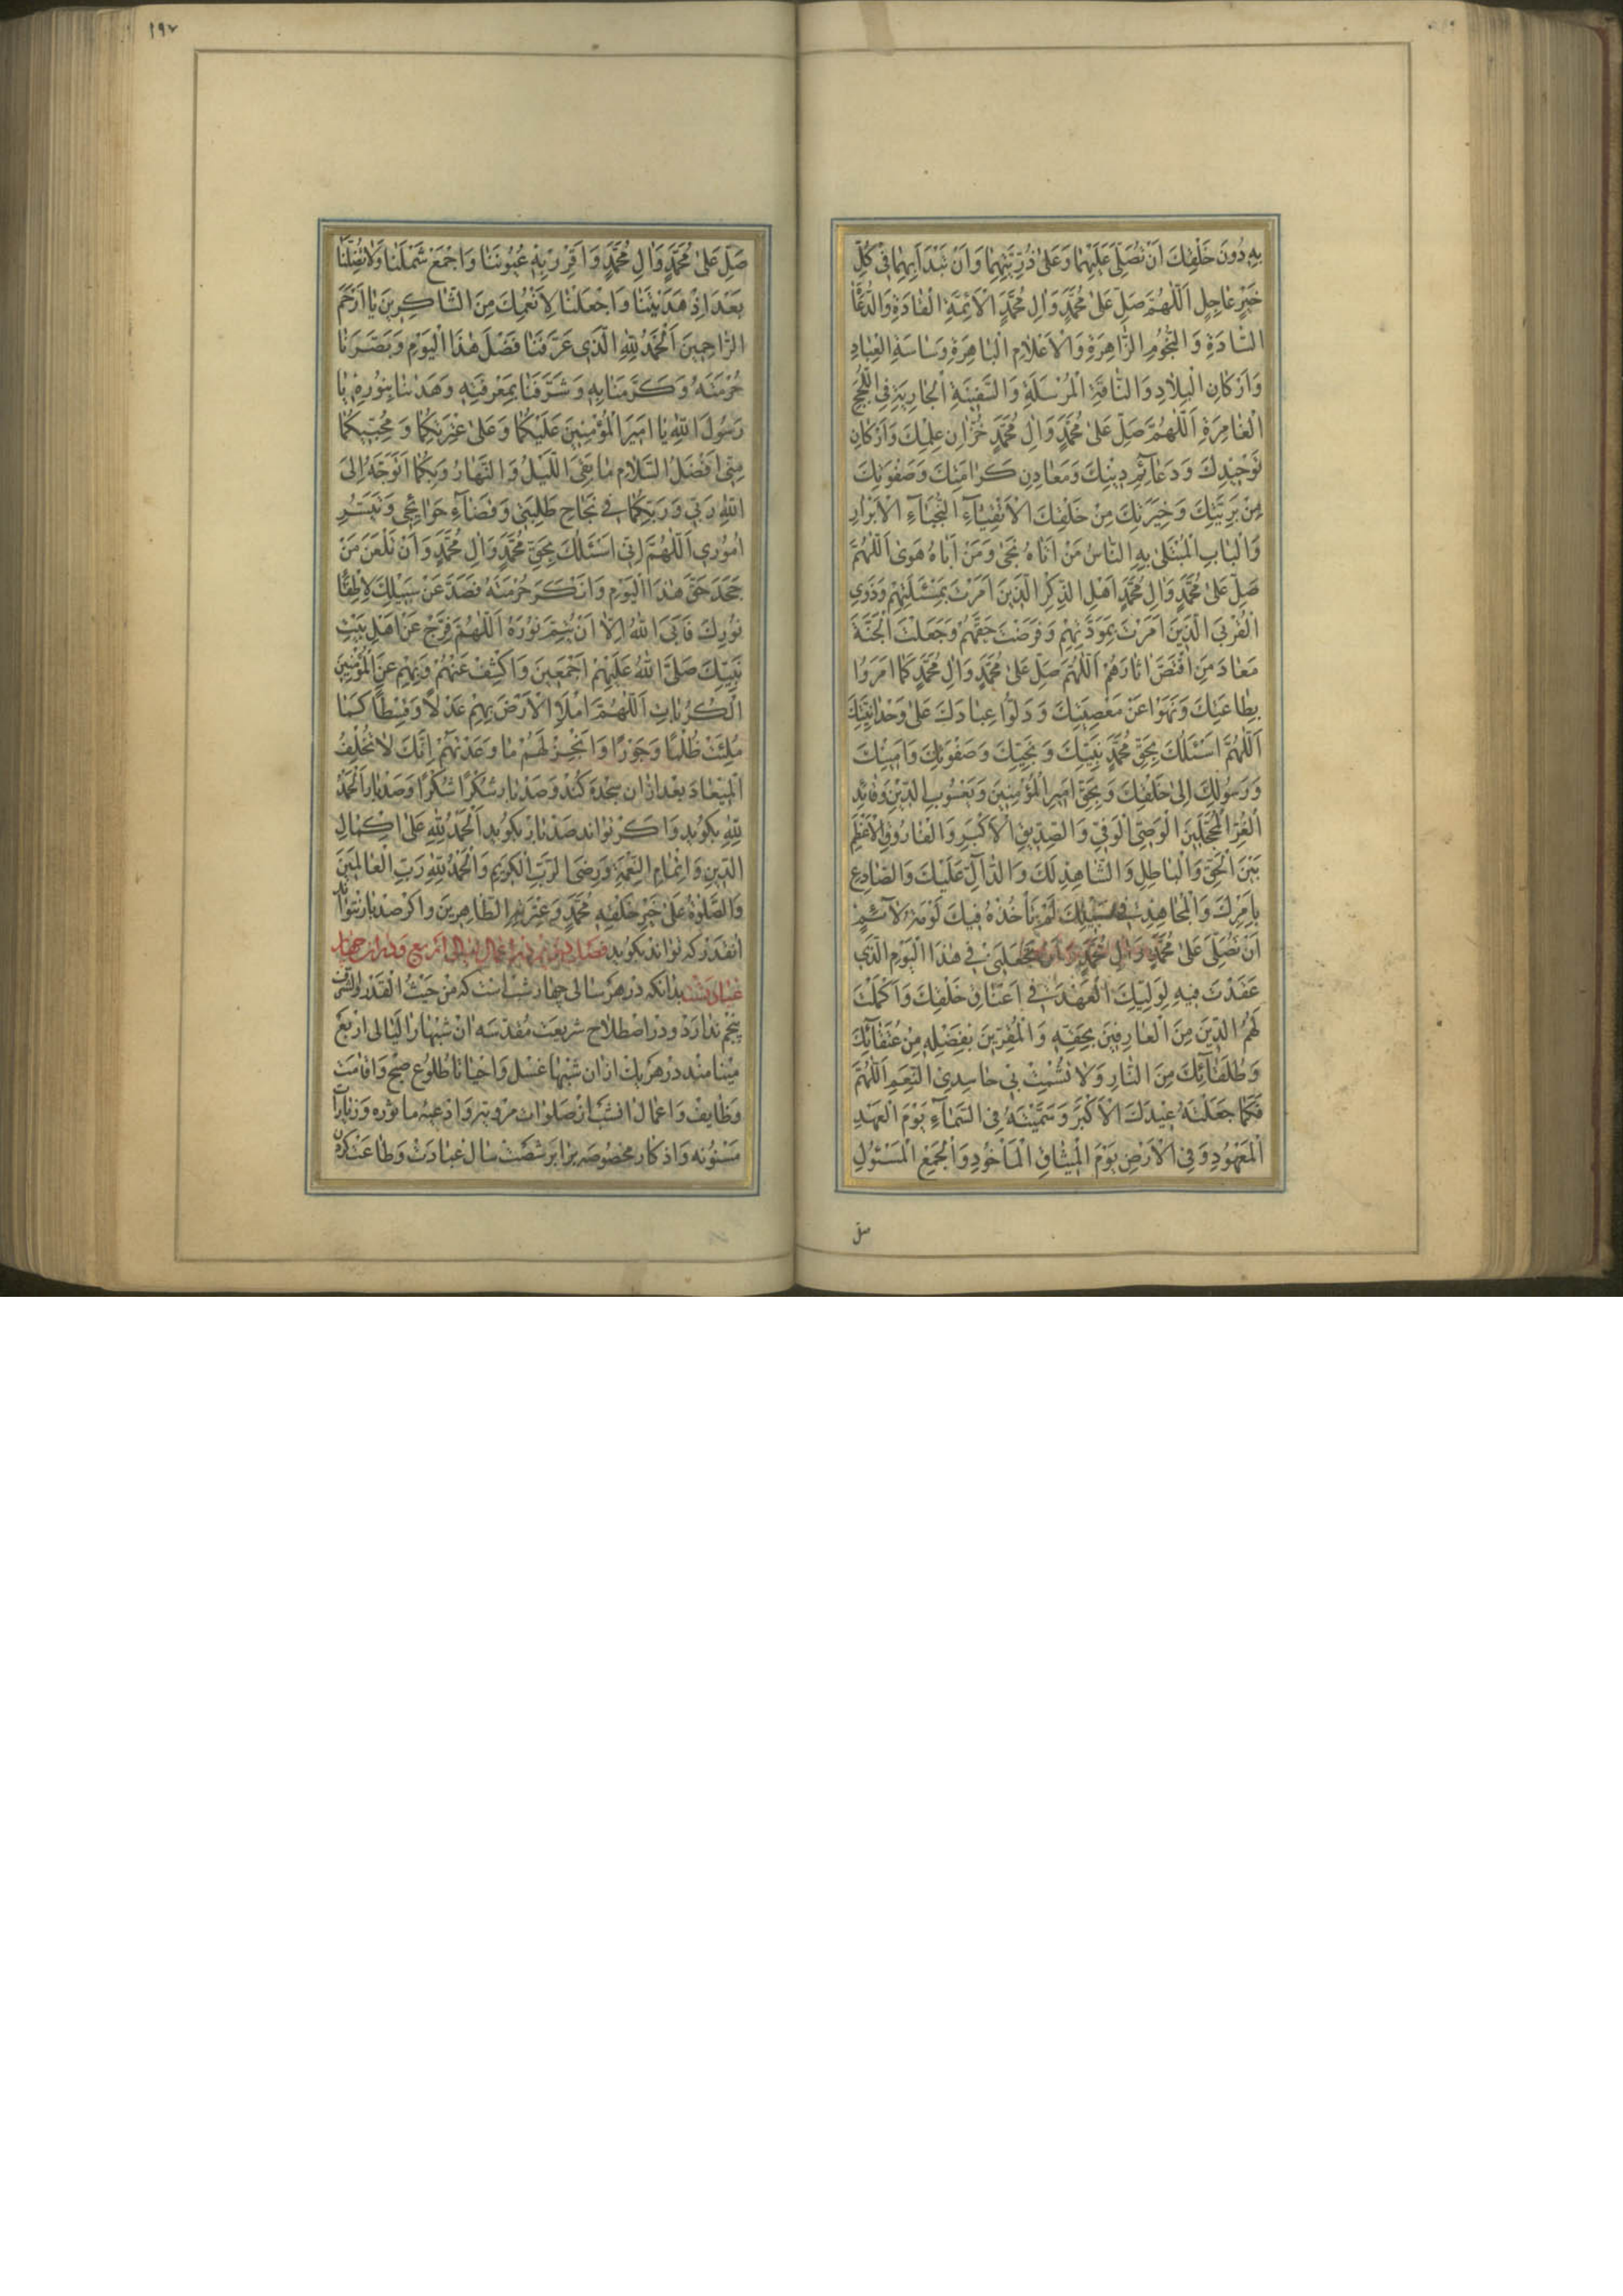 بِهِ دُونَ خَلْقِكَ اَنْ تُصَلِّیَ عَلَیْهِمٰا وَعَلیٰ ذُرِّیَّتِهِمٰا وَاَنْ تَبْدَاَ بِهِمٰا فی کُلِّ
خَیْرٍ عٰاجِلٍ اَللّٰهُمَّ صَلِّ عَلیٰ مُحَمَّدٍ وَاٰلِ مُحَمَّدٍ الْاَئِمَّةِ الْقٰادَةِ وَالدُّعٰاةِ
السّٰادَةِ وَ النُّجُومِ الزّٰاهِرَةِ وَالْاَعْلٰامِ الْبٰاهِرَةِ وَسٰاسَةِ الْعِبٰادِ
وَاَرْکٰانِ الْبِلٰادِ وَالنّٰاقَةِ الْمُرْسَلَةِ وَالسَّفینَةِ الْجٰارِیَةِ فِی اللُّجَجِ
الْغٰامِرَةِ اَللّٰهُمَّ صَلِّ عَلیٰ مُحَمَّدٍ وَاٰلِ مُحَمَّدٍ خُزّٰانِ عِلْمِكَ وَاَرْکٰانِ
تَوْحیدِكَ وَ دَعٰآئِمِ دینِكَ وَمَعٰادِنِ کَرٰامَتِكَ وَصَفْوَتِكَ
مِنْ بَرِیَّتِكَ وَ خِیَرَتِكَ مِنْ خَلْقِكَ الْاَتْقِیٰآءِ النُّجَبٰآءِ الْاَبْرٰارِ
وَالْبٰابِ الْمُبْتَلیٰ بِهِ النّٰاسُ مَنْ اَتٰاهُ نَجیٰ وَمَنْ اَبٰاهُ هَویٰ اَللّٰهُمَّ
صَلِّ عَلیٰ مُحَمَّدٍ وَاٰلِ مُحَمَّدٍ اَهْلِ الذِّکْرِ الَّذینَ اَمَرْتَ بِمَسْئَلَتِهِمْ وَذَوِی
الْقُرْبَی الَّذینَ اَمَرْتَ بِمَوَدَّتِهِمْ وَفَرَضْتَ حَقَّهُمْ وَجَعَلْتَ الْجَنَّةَ
مَعٰادَ مَنِ اقْتَصَّ اٰثٰارَهُمْ اَللّٰهُمَّ صَلِّ عَلیٰ مُحَمَّدٍ وَاٰلِ مُحَمَّدٍ کَمٰا اَمَرُوا
بِطٰاعَتِكَ وَنَهَوْا عَنْ مَعْصِیَتِكَ وَ دَلُّوا عِبٰادَكَ عَلیٰ وَحْدٰانِیَّتِكَ
اَللّٰهُمَّ اَسْئَلُكَ بِحَقِّ مُحَمَّدٍ نَبِیِّكَ وَ نَجِیِّكَ وَصَفْوَتِكَ وَاَمینِكَ
وَرَسُولِكَ اِلیٰ خَلْقِكَ وَ بِحَقِّ اَمیرِ الْمُؤْمِنینَ وَیَعْسُوبِ الدّینِ وَقٰائِدِ
الْغُرِّ الْمُحَجَّلینَ الْوَصِیِّ الْوَفِیِّ وَ الصِّدّیقِ الْاَکْبَرِ وَ الْفٰارُوقِ الْاَعْظَمِ
بَیْنَ الْحَقِّ وَالْبٰاطِلِ وَ الشّٰاهِدِ لَكَ وَ الدّٰآلِّ عَلَیْكَ وَالصّٰادِعِ
بِاَمْرِكَ وَ الْمُجٰاهِدِ فی سَبیلِكَ لَمْ یَأْخُذْهُ فیكَ لَوْمَةُ لٰآئِمٍ
اَنْ تُصَلِّیَ عَلیٰ مُحَمَّدٍ وَاٰلِ مُحَمَّدٍ وَاَنْ تَجْعَلَنی فی هٰذَا الْیَوْمِ الَّذی
عَقَدْتَ فیهِ لِوَلِیِّكَ الْعَهْدَ فی اَعْنٰاقِ خَلْقِكَ وَ اَکْمَلْتَ
لَهُمُ الدّینَ مِنَ الْعٰارِفینَ بِحَقِّهِ وَ الْمُقِرّینَ بِفَضْلِهِ مِنْ عُتَقٰآئِكَ
وَ طُلَقٰآئِكَ مِنَ النّٰارِ وَلٰا تُشْمِتْ بی حٰاسِدِی النِّعَمِ اَللّٰهُمَّ
فَکَمٰا جَعَلْتَهُ عیدَكَ الْاَکْبَرَ وَ سَمَّیْتَهُ فِی السَّمٰآءِ یَوْمَ الْعَهْدِ
الْمَعْهُودِ وَ فِی الْاَرْضِ یَوْمَ الْمیثٰاقِ الْمَأْخُوذِ وَ الْجَمْعِ الْمَسْئُولِ
صل
١٩٧
صَلِّ عَلیٰ مُحَمَّدٍ وَاٰلِ مُحَمَّدٍ وَ اَقْرِرْ بِهِ عُیُونَنٰا وَ اجْمَعْ شَمْلَنٰا وَلٰا تُضِلَّنٰا
بَعْدَ اِذْ هَدَیْتَنٰا وَ اجْعَلْنٰا لِاَنْعُمِكَ مِنَ الشّٰاکِرینَ یٰا اَرْحَمَ
الرّٰاحِمینَ اَلْحَمْدُ لِلّٰهِ الَّذی عَرَّفَنٰا فَضْلَ هٰذَا الْیَوْمِ وَ بَصَّرَنٰا
حُرْمَتَهُ وَ کَرَّمَنٰا بِهِ وَ شَرَّفَنٰا بِمَعْرِفَتِهِ وَ هَدٰینٰا بِنُورِهِ یٰا
رَسُولَ اللّٰهِ یٰا اَمیرَ الْمُؤْمِنینَ عَلَیْکُمٰا وَ عَلیٰ عِتْرَتِکُمٰا وَ مُحِبّیکُمٰا
مِنّی اَفْضَلُ السَّلٰامِ مٰا بَقِیَ اللَّیْلُ وَ النَّهٰارُ وَ بِکُمٰا اَتَوَجَّهُ اِلَی
اللّٰهِ رَبّی وَ رَبِّکُمٰا فی نَجٰاحِ طَلِبَتی وَ قَضٰآءِ حَوٰائِجی وَ تَیْسیرِ
اُمُوری اَللّٰهُمَّ اِنّی اَسْئَلُكَ بِحَقِّ مُحَمَّدٍ وَاٰلِ مُحَمَّدٍ وَ اَنْ تَلْعَنَ مَنْ
جَحَدَ حَقَّ هٰذَا الْیَوْمِ وَ اَنْکَرَ حُرْمَتَهُ فَصَدَّ عَنْ سَبیلِكَ لِاِطْفٰاءِ
نُورِكَ فَاَبَی اللّٰهُ اِلّٰا اَنْ یُتِمَّ نُورَهُ اَللّٰهُمَّ فَرِّجْ عَنْ اَهْلِ بَیْتِ
نَبِیِّكَ صَلَّی اللّٰهُ عَلَیْهِمْ اَجْمَعینَ وَ اکْشِفْ عَنْهُمْ وَ بِهِمْ عَنِ الْمُؤْمِنینَ
الْکُرُبٰاتِ اَللّٰهُمَّ امْلَاِ الْاَرْضَ بِهِمْ عَدْلًا وَ قِسْطًا کَمٰا
مُلِئَتْ ظُلْمًا وَ جَوْرًا وَ اَنْجِزْ لَهُمْ مٰا وَعَدْتَهُمْ اِنَّكَ لٰا تُخْلِفُ
الْمیعٰادَ بعد ازان سجده کند و صد بار شُکْرًا شُکْرًا و صد بار اَلْحَمْدُ
لِلّٰهِ بکوید و اکر تواند صد بار بکوید اَلْحَمْدُ لِلّٰهِ عَلیٰ اِکْمٰالِ
الدّینِ وَ اِتْمٰامِ النِّعْمَةِ وَ رِضَی الرَّبِّ الْکَریمِ وَ الْحَمْدُ لِلّٰهِ رَبِّ الْعٰالَمینَ
وَالصَّلٰوةُ عَلیٰ خَیْرِ خَلْقِهِ مُحَمَّدٍ وَ عِتْرَتِهِ الطّٰاهِرینَ و اکر صد بار نتواند
انقدر که تواند بکوید فصل در اعمال لیالی اربع و
بدانکه در هر سالی چهار شب است که من حیث القدر والشرف
پنجم ندارد و در اصطلاح شریعت مقدسه ان شبها را لیالی اربع
مینامند در هر یك از ان شبها غسل و احیا تا طلوع صبح و اقامت
وظایف و اعمال انشب از صلوات مرویه و ادعیه ماثوره و زیارات
مسنونه و اذکار مخصوصه برابر شصت سال عبادت و طاعت کردن